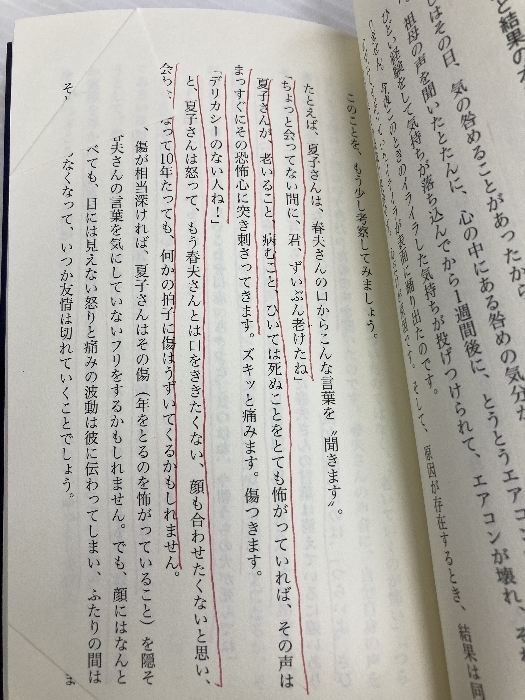 と結果の
しはその日、気の咎めることがあったから
祖母の声を聞いたとたんに、心の中にある咎めの気分が
ひどい経験をして気持ちが落ち込んでから1週間後に、とうとうエアコン
のときのイライラした気持ちが投げつけられて、エアコンが壊れ、
が表面に踊り出たのです。
そして、原因が存在するとき、結果は同
このことを、もう少し考察してみましょう。
たとえば、夏子さんは、春夫さんの口からこんな言葉を〝聞きます〟。
「ちょっと会ってない間に、君、ずいぶん老けたね」
夏子さんが、老いること、病むこと、ひいては死ぬことをとても怖がっていれば、その声は
まっすぐにその恐怖心に突き刺さってきます。ズキッと痛みます。傷つきます。
「デリカシーのない人ね！」
と、夏子さんは怒って、もう春夫さんとは口をききたくない、顔も合わせたくないと思い、
会わ なって10年たっても、何かの拍子に傷はうずいてくるかもしれません。
、傷が相当深ければ、夏子さんはその傷（年をとるのを怖がっていること）を隠そ
夫さんの言葉を気にしていないフリをするかもしれません。でも、顔にはなんと
べても、目には見えない怒りと痛みの波動は彼に伝わってしまい、ふたりの間は
そ なくなって、いつか友情は切れていくことでしょう。
ま